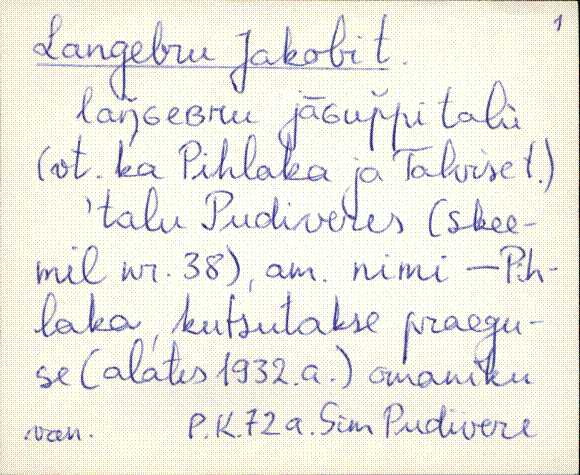 1
Langebru Jakobi t.
laŋ̆ɢeʙru jāɢup̆pi talù
(vt. ka Pihlaka ja Talvise t.)
'talu Pudiveres (skee-
mil nr. 38), am. nimi – Pih-
laka, kutsutakse praegu-
se (alates 1932.a.) omaniku
van. P.K. 72 a. Sim Pudivere